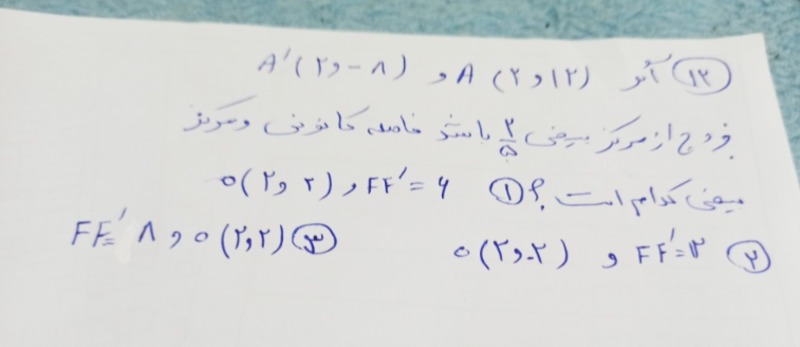 ۱۲ اگر A (۲ و ۱۲) و A'(۲ و -۸)
خروج از مرکز بیضی ۲/۵ باشد فاصله کانونی و مرکز
بیضی کدام است؟ ۱ FF' = ۴ و O(۲ و ۲)
۲ FF'=۱۲ و O(۲ و -۲) ۳ O(۲,۲) و FF'= ۸